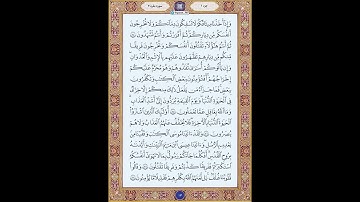 جزء ١ سورة بقرة ٢
وَإِذْ أَخَذْنَا مِيثَٰقَكُمْ لَا تَسْفِكُونَ دِمَآءَكُمْ وَلَا تُخْرِجُونَ
أَنفُسَكُم مِّن دِيَٰرِكُمْ ثُمَّ أَقْرَرْتُمْ وَأَنتُمْ تَشْهَدُونَ ٨٤
ثُمَّ أَنتُمْ هَٰٓؤُلَآءِ تَقْتُلُونَ أَنفُسَكُمْ وَتُخْرِجُونَ فَرِيقًا
مِّنكُم مِّن دِيَٰرِهِمْ تَظَٰهَرُونَ عَلَيْهِم بِٱلْإِثْمِ وَٱلْعُدْوَٰنِ
وَإِن يَأْتُوكُمْ أُسَٰرَىٰ تُفَٰدُوهُمْ وَهُوَ مُحَرَّمٌ عَلَيْكُمْ
إِخْرَاجُهُمْ أَفَتُؤْمِنُونَ بِبَعْضِ ٱلْكِتَٰبِ وَتَكْفُرُونَ
بِبَعْضٍ فَمَا جَزَآءُ مَن يَفْعَلُ ذَٰلِكَ مِنكُمْ إِلَّا خِزْيٌ
فِى ٱلْحَيَوٰةِ ٱلدُّنْيَا وَيَوْمَ ٱلْقِيَٰمَةِ يُرَدُّونَ إِلَىٰٓ أَشَدِّ ٱلْعَذَابِ
وَمَا ٱللَّهُ بِغَٰفِلٍ عَمَّا تَعْمَلُونَ ٨٥ أُو۟لَٰٓئِكَ ٱلَّذِينَ ٱشْتَرَوُا۟
ٱلْحَيَوٰةَ ٱلدُّنْيَا بِٱلْءَاخِرَةِ فَلَا يُخَفَّفُ عَنْهُمُ ٱلْعَذَابُ وَلَا هُمْ
يُنصَرُونَ ٨٦ وَلَقَدْ ءَاتَيْنَا مُوسَى ٱلْكِتَٰبَ وَقَفَّيْنَا
مِنۢ بَعْدِهِۦ بِٱلرُّسُلِ وَءَاتَيْنَا عِيسَى ٱبْنَ مَرْيَمَ ٱلْبَيِّنَٰتِ وَأَيَّدْنَٰهُ
بِرُوحِ ٱلْقُدُسِ أَفَكُلَّمَا جَآءَكُمْ رَسُولٌۢ بِمَا لَا تَهْوَىٰٓ أَنفُسُكُمُ
ٱسْتَكْبَرْتُمْ فَفَرِيقًا كَذَّبْتُمْ وَفَرِيقًا تَقْتُلُونَ ٨٧ وَقَالُوا۟
قُلُوبُنَا غُلْفٌۢ بَل لَّعَنَهُمُ ٱللَّهُ بِكُفْرِهِمْ فَقَلِيلًا مَّا يُؤْمِنُونَ ٨٨